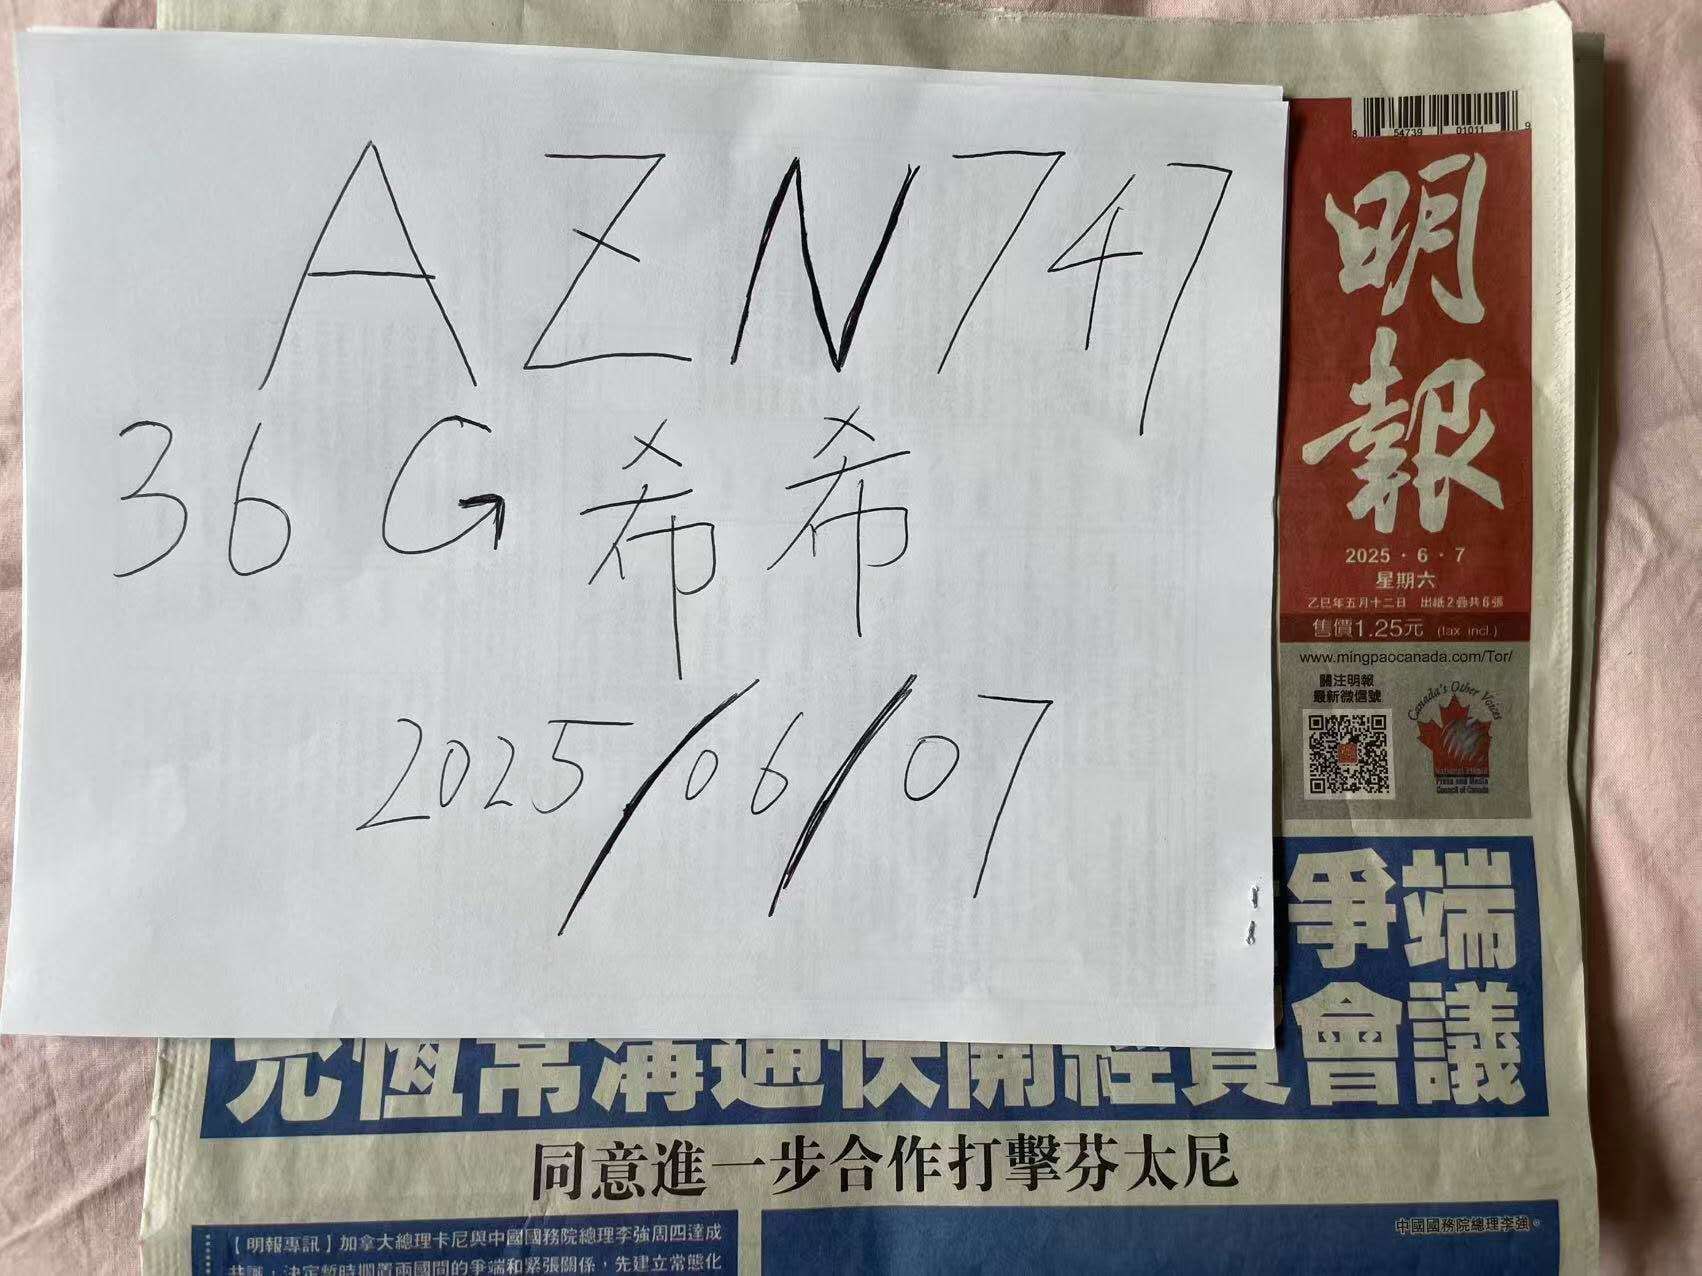 AZN747
36G希希
2025/06/07
8 54739 01011 9
明報
2025·6·7
星期六
乙巳年五月十二日 出紙2疊共6張
售價1.25元 (tax incl.)
www.mingpaocanada.com/Tor/
關注明報
最新微信號
Canada's Other Voices
National Ethnic
Press and Media
Council of Canada
爭端
允恆常溝通快開經貿會議
同意進一步合作打擊芬太尼
【明報專訊】加拿大總理卡尼與中國國務院總理李強周四達成
共識，決定暫時擱置兩國間的爭端和緊張關係，先建立常態化
中國國務院總理李強。